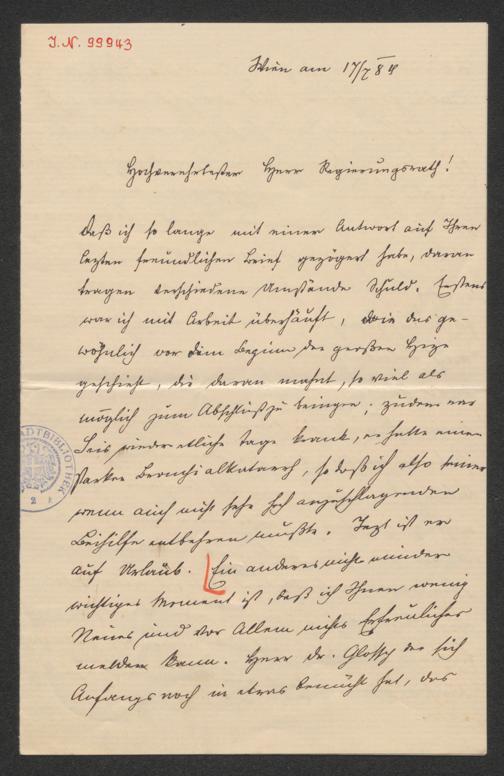 J.N. 99943
Wien am 17/7 84
Hochverehrtester Herr Regierungsrath!
Daß ich so lange mit einer Antwort auf Ihren
lezten freundlichen Brief gezögert habe, daran
tragen verschiedene Umstände Schuld. Erstens
war ich mit Arbeit überhäuft, wie das ge-
wöhnlich vor dem Beginn der großen Hize
geschieht, die daran mahnt, so viel als
möglich zum Abschluß zu bringen; zudem war
Seis wieder etliche Tage krank, er hatte einen
starken Bronchialkatarrh, so daß ich also seiner
wenn auch nicht sehr hoch anzuschlagenden
Beihilfe entbehren mußte. Jezt ist er
auf Urlaub. Ein anderes nicht minder
wichtiges Moment ist, daß ich Ihnen wenig
Neues und vor Allem nichts Erfreuliches
melden kann. Herr Dr. Glossy der sich
Anfangs noch in etwas bemüht hat, das
STADTBIBLIOTHEK